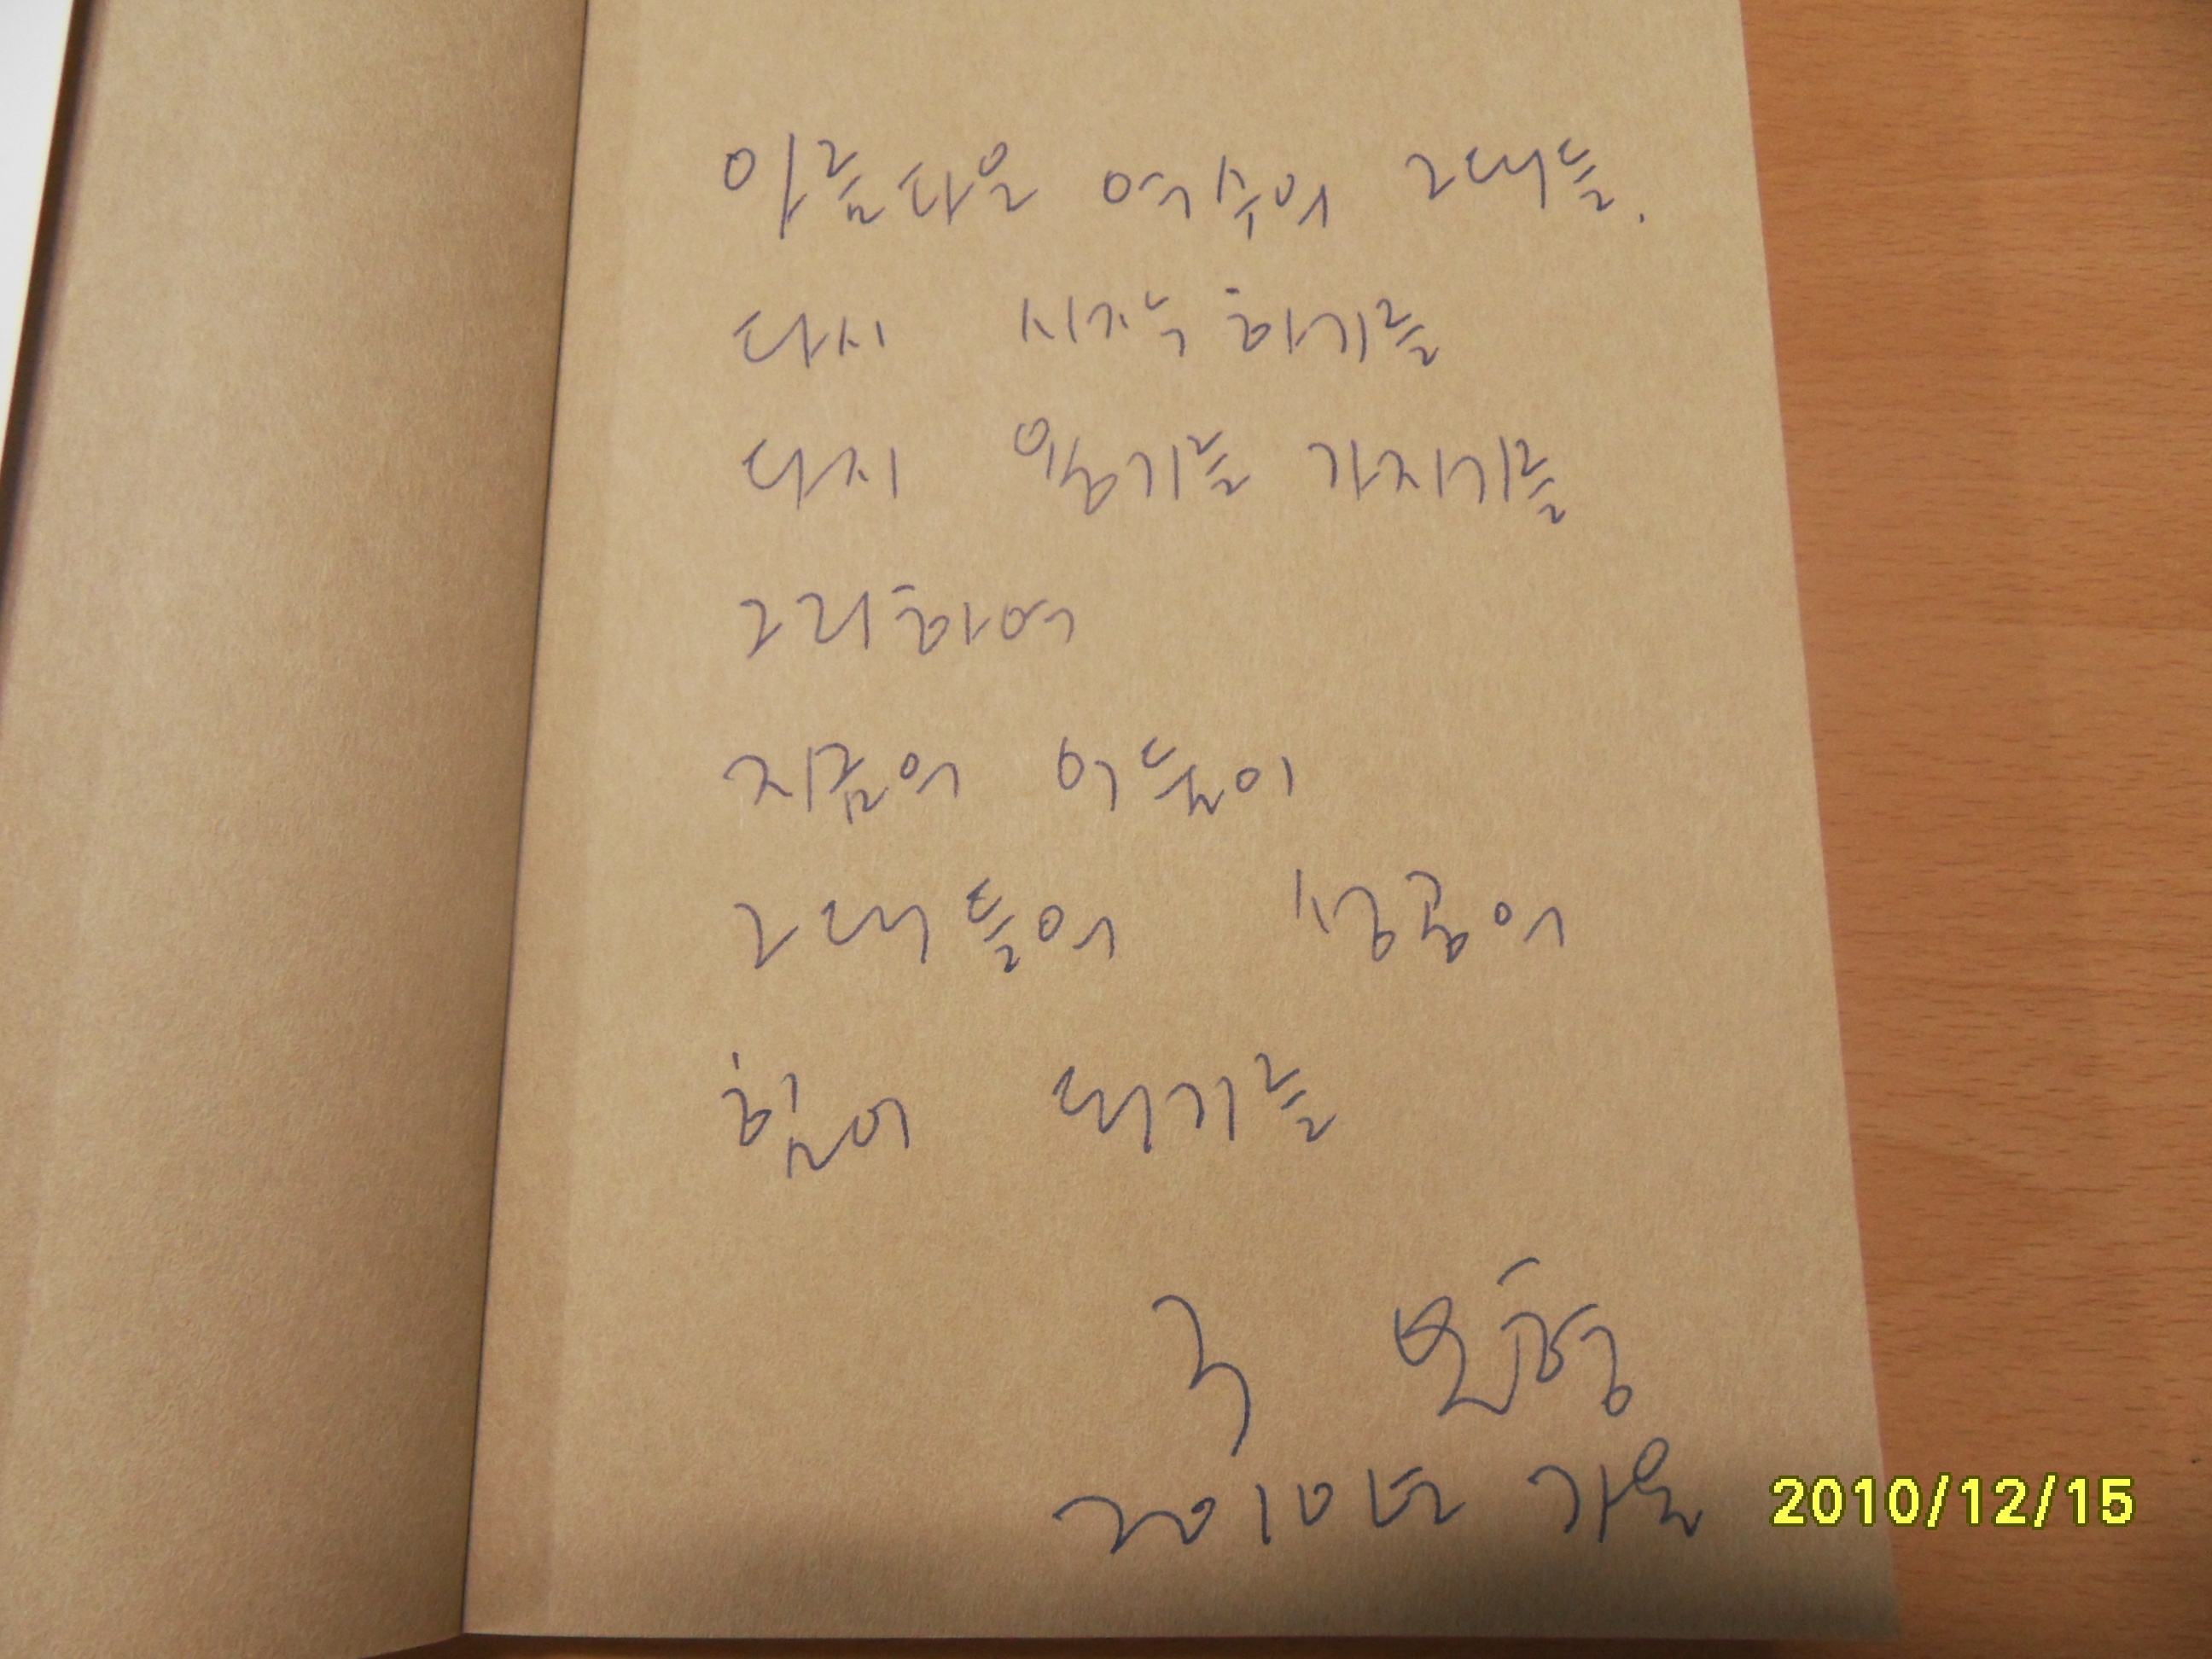 아름다운 여수의 그대들.
다시 시작하기를
다시 용기를 가지기를
그리하여
지금의 어둠이
그대들의 성공의
힘이 되기를
2010년 가을
2010/12/15